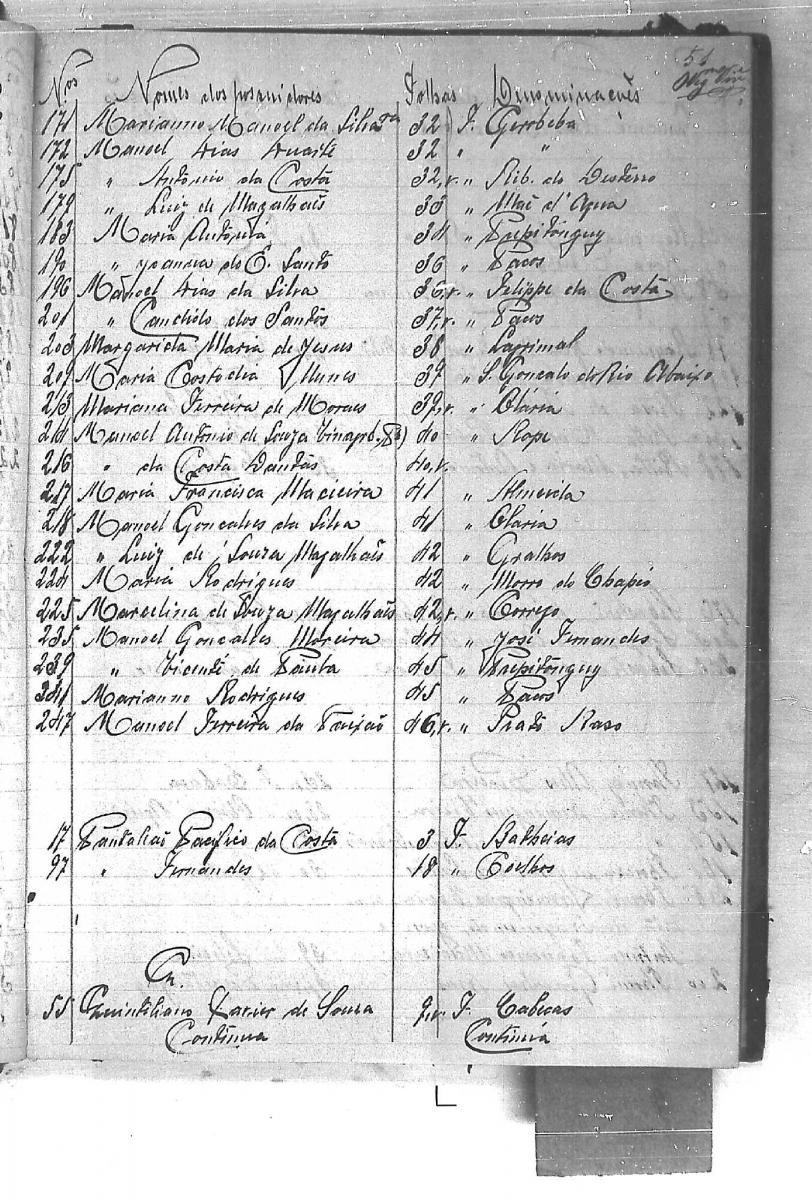 51
Nos Nomes dos possuidores Folhas Denominações
171 Marianno Manoel da Silva 32 F. Gerobeba
172 Manoel Dias Duarte 32 " "
175 " Antonio da Costa 32,v. " Rib. do Desterro
179 " Luiz de Magalhães 33 " Mae d'Agua
183 Maria Antonia 34 " Perpitinguy
190 " Joanna do E. Santo 36 " Pacos
196 Manoel Dias da Silva 36,v. " Felippe da Costa
201 " Candido dos Santos 37,v. " Pacos
203 Margarida Maria de Jesus 38 " Lagrimal
209 Maria Costodia Nunes 39 " S. Goncalo do Rio Abaixo
213 Marianna Ferreira de Moraes 39,v. " Olaria
214 Manoel Antonio de Souza 40 " Rope
216 " da Costa Dantas 40,v.
217 Maria Francisca Macieira 41 " Almeida
218 Manoel Goncalves da Silva 41 " Olaria
222 " Luiz de Souza Magalhães 42 " Gralhos
224 Maria Rodrigues 42 " Morro do Chapeo
225 Marcelina de Souza Magalhães 42,v. " Corrego
235 Manoel Goncalves Moreira 44 " José Fernandes
239 " Vicente de Paula 45 " Perpitinguy
341 Marianno Rodrigues 45 " Pacos
247 Manoel Ferreira da Paixão 46,v. " Prato Raso
17 Pantalião Pacifico da Costa 3 F. Batheias
97 " Fernandes 18 " Coelhos
Q.
55 Quintiliano Xavier de Souza 9v. F. Cabecas
Continua Continua